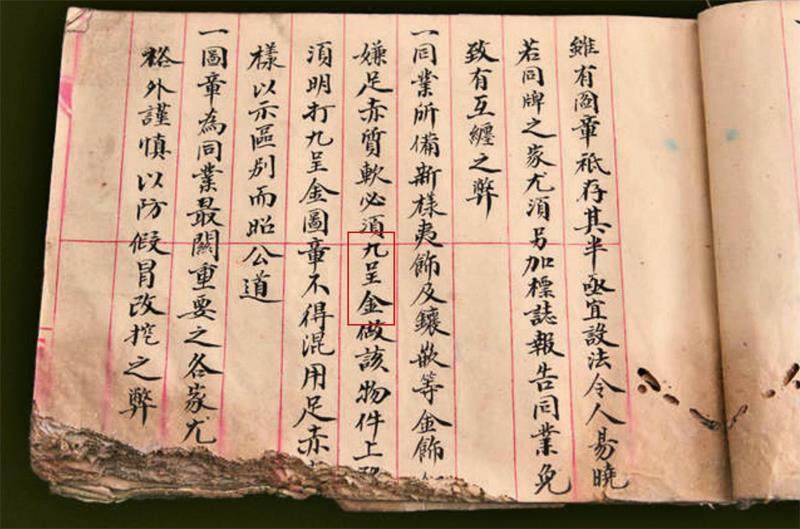 雖有圖章祇存其半亟宜設法令人易曉
若同牌之家尤須另加標誌報告同業免
致有互纏之弊
一同業所備新樣夷飾及鑲嵌等金飾
嫌足赤質軟必須九呈金做該物件上
須明打九呈金圖章不得混用足赤
樣以示區別而昭公道
一圖章為同業最關重要之各家尤
格外謹慎以防假冒改挖之弊